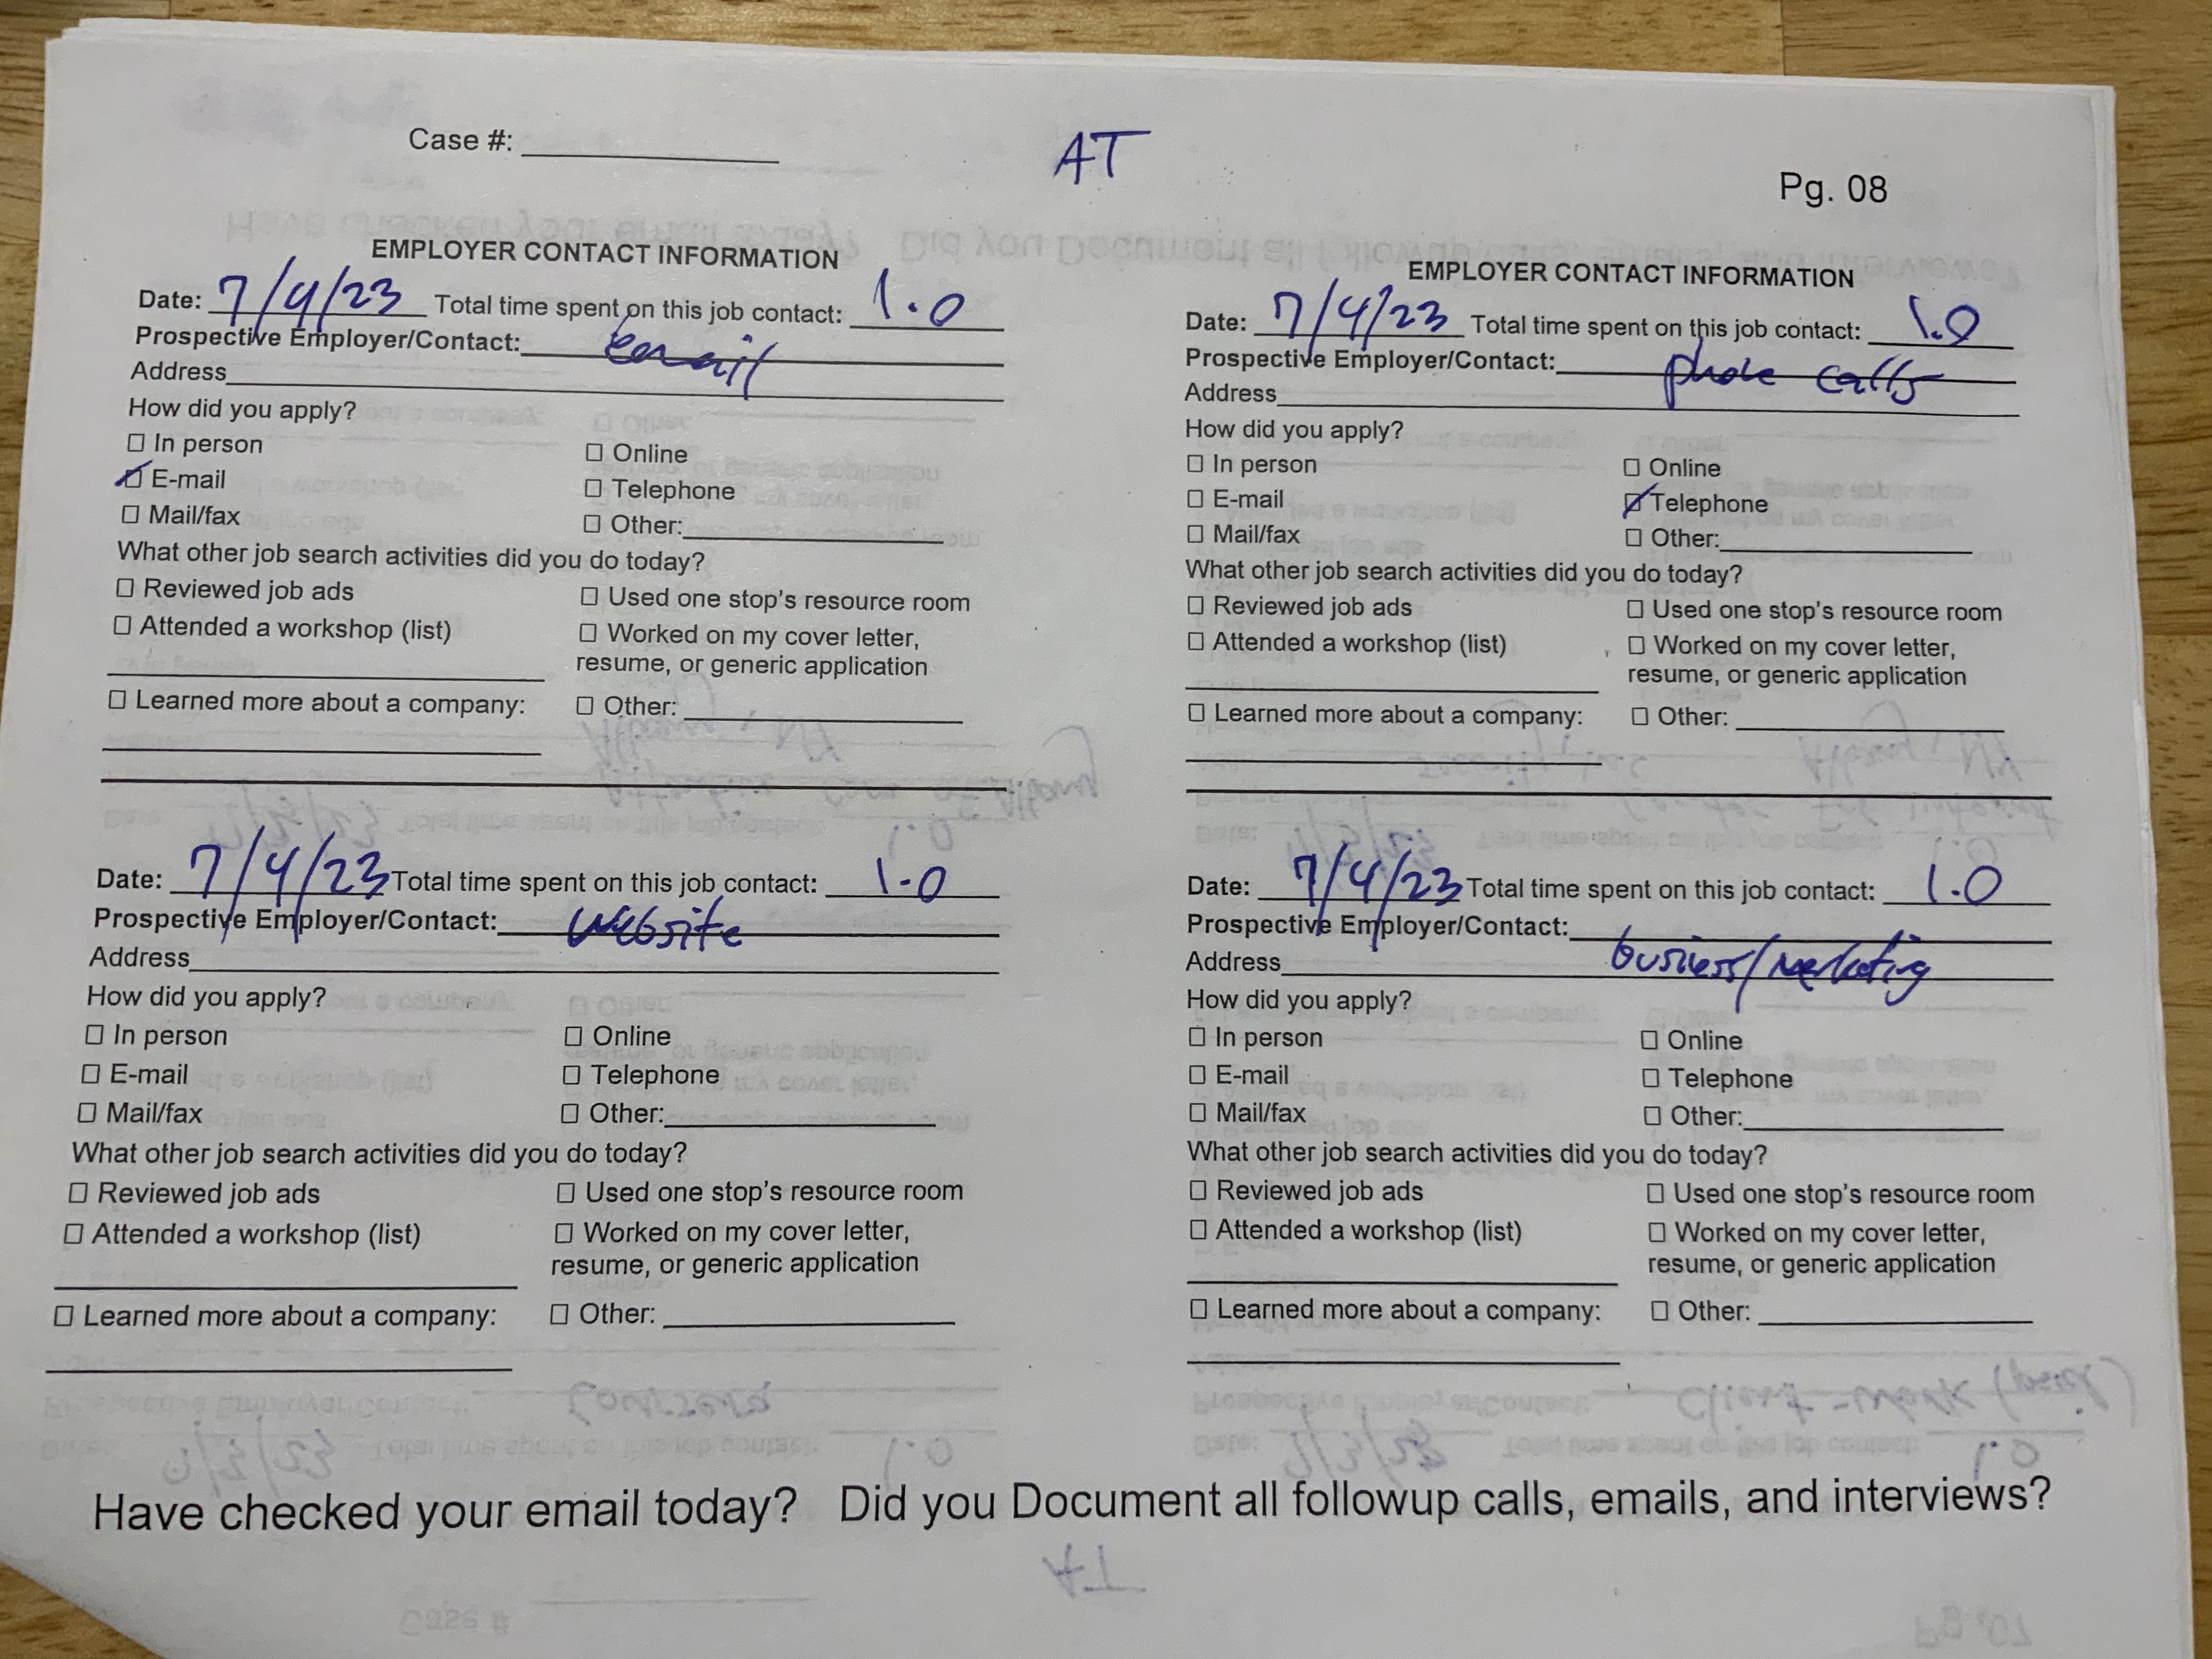 Case #:
AT
Pg. 08
EMPLOYER CONTACT INFORMATION
Date: 7/4/23 Total time spent on this job contact: 1.0
Prospective Employer/Contact: email
Address
How did you apply?
☐ In person
☐ Online
☑ E-mail
☐ Telephone
☐ Mail/fax
☐ Other:
What other job search activities did you do today?
☐ Reviewed job ads
☐ Used one stop's resource room
☐ Attended a workshop (list)
☐ Worked on my cover letter,
resume, or generic application
☐ Learned more about a company:
☐ Other:
EMPLOYER CONTACT INFORMATION
Date: 7/4/23 Total time spent on this job contact: 1.0
Prospective Employer/Contact: phone calls
Address
How did you apply?
☐ In person
☐ Online
☐ E-mail
☑ Telephone
☐ Mail/fax
☐ Other:
What other job search activities did you do today?
☐ Reviewed job ads
☐ Used one stop's resource room
☐ Attended a workshop (list)
☐ Worked on my cover letter,
resume, or generic application
☐ Learned more about a company:
☐ Other:
Date: 7/4/23 Total time spent on this job contact: 1.0
Prospective Employer/Contact: website
Address
How did you apply?
☐ In person
☐ Online
☐ E-mail
☐ Telephone
☐ Mail/fax
☐ Other:
What other job search activities did you do today?
☐ Reviewed job ads
☐ Used one stop's resource room
☐ Attended a workshop (list)
☐ Worked on my cover letter,
resume, or generic application
☐ Learned more about a company:
☐ Other:
Date: 7/4/23 Total time spent on this job contact: 1.0
Prospective Employer/Contact:
Address business/marketing
How did you apply?
☐ In person
☐ Online
☐ E-mail
☐ Telephone
☐ Mail/fax
☐ Other:
What other job search activities did you do today?
☐ Reviewed job ads
☐ Used one stop's resource room
☐ Attended a workshop (list)
☐ Worked on my cover letter,
resume, or generic application
☐ Learned more about a company:
☐ Other:
Have checked your email today? Did you Document all followup calls, emails, and interviews?